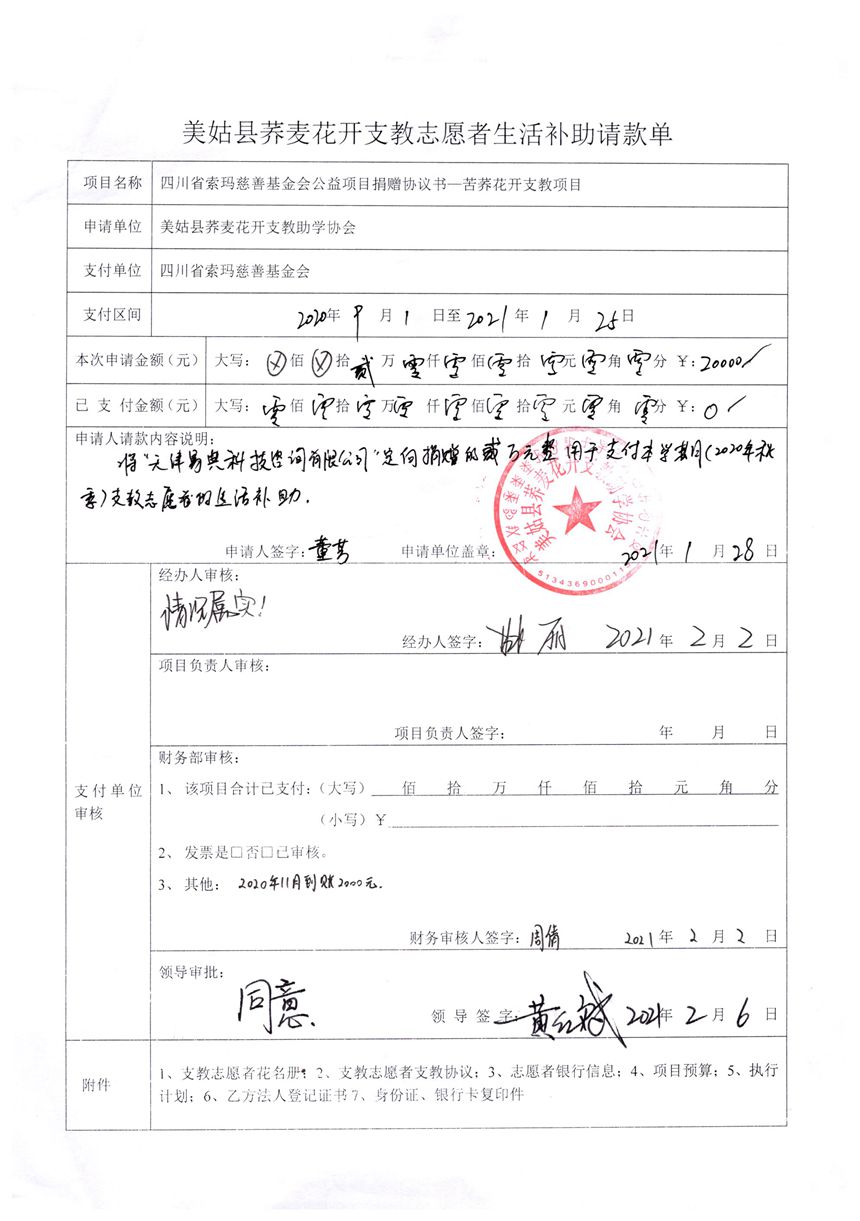 美姑县荞麦花开支教志愿者生活补助请款单
项目名称 四川省索玛慈善基金会公益项目捐赠协议书—苦荞花开支教项目
申请单位 美姑县荞麦花开支教助学协会
支付单位 四川省索玛慈善基金会
支付区间 2020年 9 月 1 日至2021年 1 月 25日
本次申请金额（元） 大写：ⓧ佰ⓧ拾贰万零仟零佰零拾零元零角零分 ￥：20000/
已支付金额（元） 大写：零佰零拾零万零仟零佰零拾零元零角零分 ￥：0/
申请人请款内容说明：
将"天津易典科技咨询有限公司"定向捐赠的贰万元整 用于支付本学期(2020年秋
季)支教志愿者的生活补助.
美姑县荞麦花开支教助学协会
申请人签字：董芳 申请单位盖章： 2021年 1 月 28 日
支付单位审核
经办人审核：
情况属实!
经办人签字： 丽 2021 年 2 月 2 日
项目负责人审核：
项目负责人签字： 年 月 日
财务部审核：
1、 该项目合计已支付：（大写） 佰 拾 万 仟 佰 拾 元 角 分
（小写）￥
2、 发票是□否□已审核。
3、 其他： 2020年11月到账2000元.
财务审核人签字：周倩 2021 年 2 月 2 日
领导审批：
同意.
领 导 签 字：黄红斌 2021年 2 月 6 日
附件 1、支教志愿者花名册；2、支教志愿者支教协议；3、志愿者银行信息；4、项目预算；5、执行
计划；6、乙方法人登记证书 7、身份证、银行卡复印件